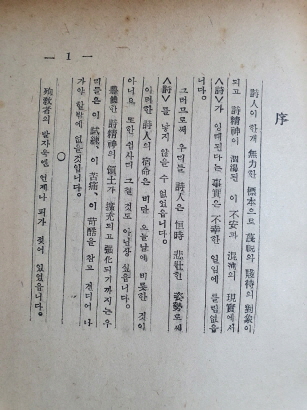 — 1 —
序
詩人이 한개 無力한 標本으로 蔑視와 嘲待의 對象이
되고 詩精神이 涸渴된 이 不安과 混沌의 現實에서
<詩>가 잉태된다는 事實은 不幸한 일임에 틀림없읍
니다。
그러므로써 우리들 詩人은 恒時 悲壯한 姿勢로써
<詩>를 낳지 않을 수 없었읍니다。
이러한 詩人의 宿命은 비단 오늘날에 비롯한 것이
아니오 또한 쉽사리 그칠 것도 아닌상 싶읍니다。
詩精神의 領土가 擴充되고 强化되기까지는 우
리들은 이 試練、이 苦痛、이 苛酷을 참고 견디어 나
가야 할밖에 없을것입니다。
○
殉敎者의 발자욱엔 언제나 피가 젖어 있었읍니다。